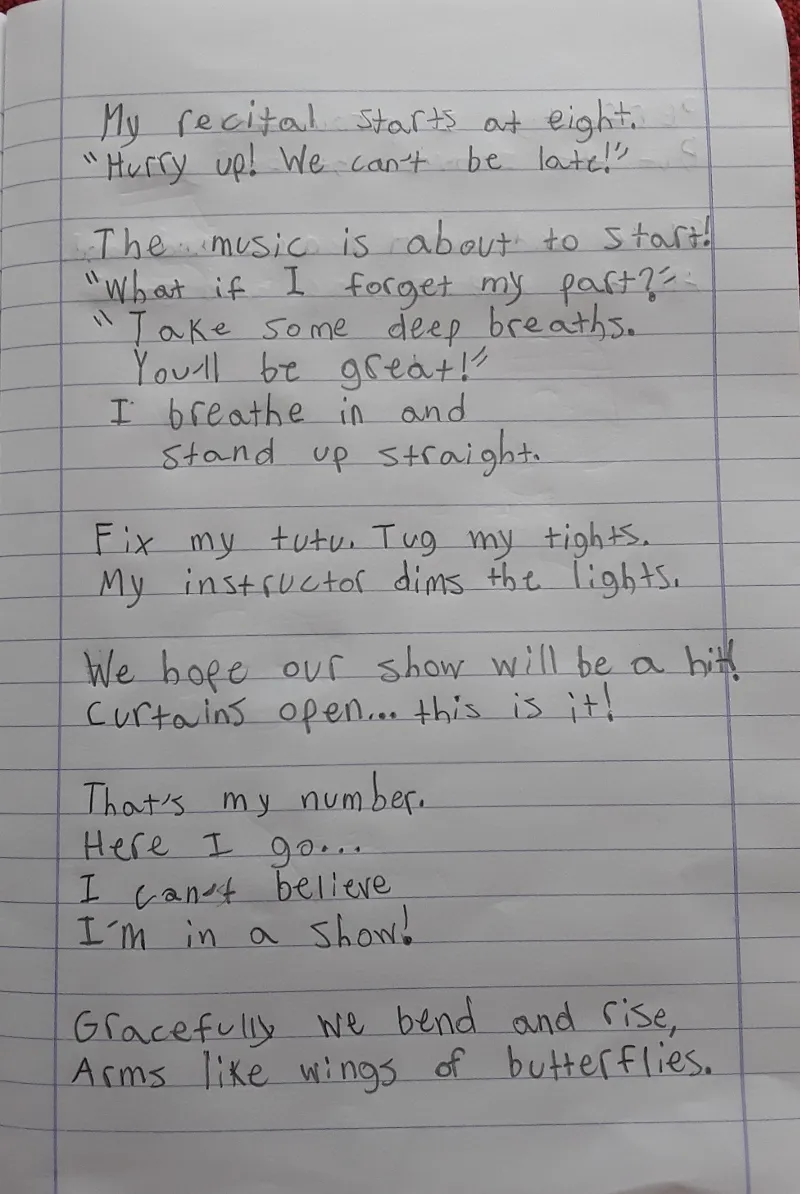 My recital starts at eight.
"Hurry up! We can't be late!"
The music is about to start!
"What if I forget my part?"
"Take some deep breaths.
You'll be great!"
I breathe in and
stand up straight.
Fix my tutu. Tug my tights.
My instructor dims the lights.
We hope our show will be a hit!
Curtains open... this is it!
That's my number.
Here I go...
I can't believe
I'm in a show!
Gracefully we bend and rise,
Arms like wings of butterflies.